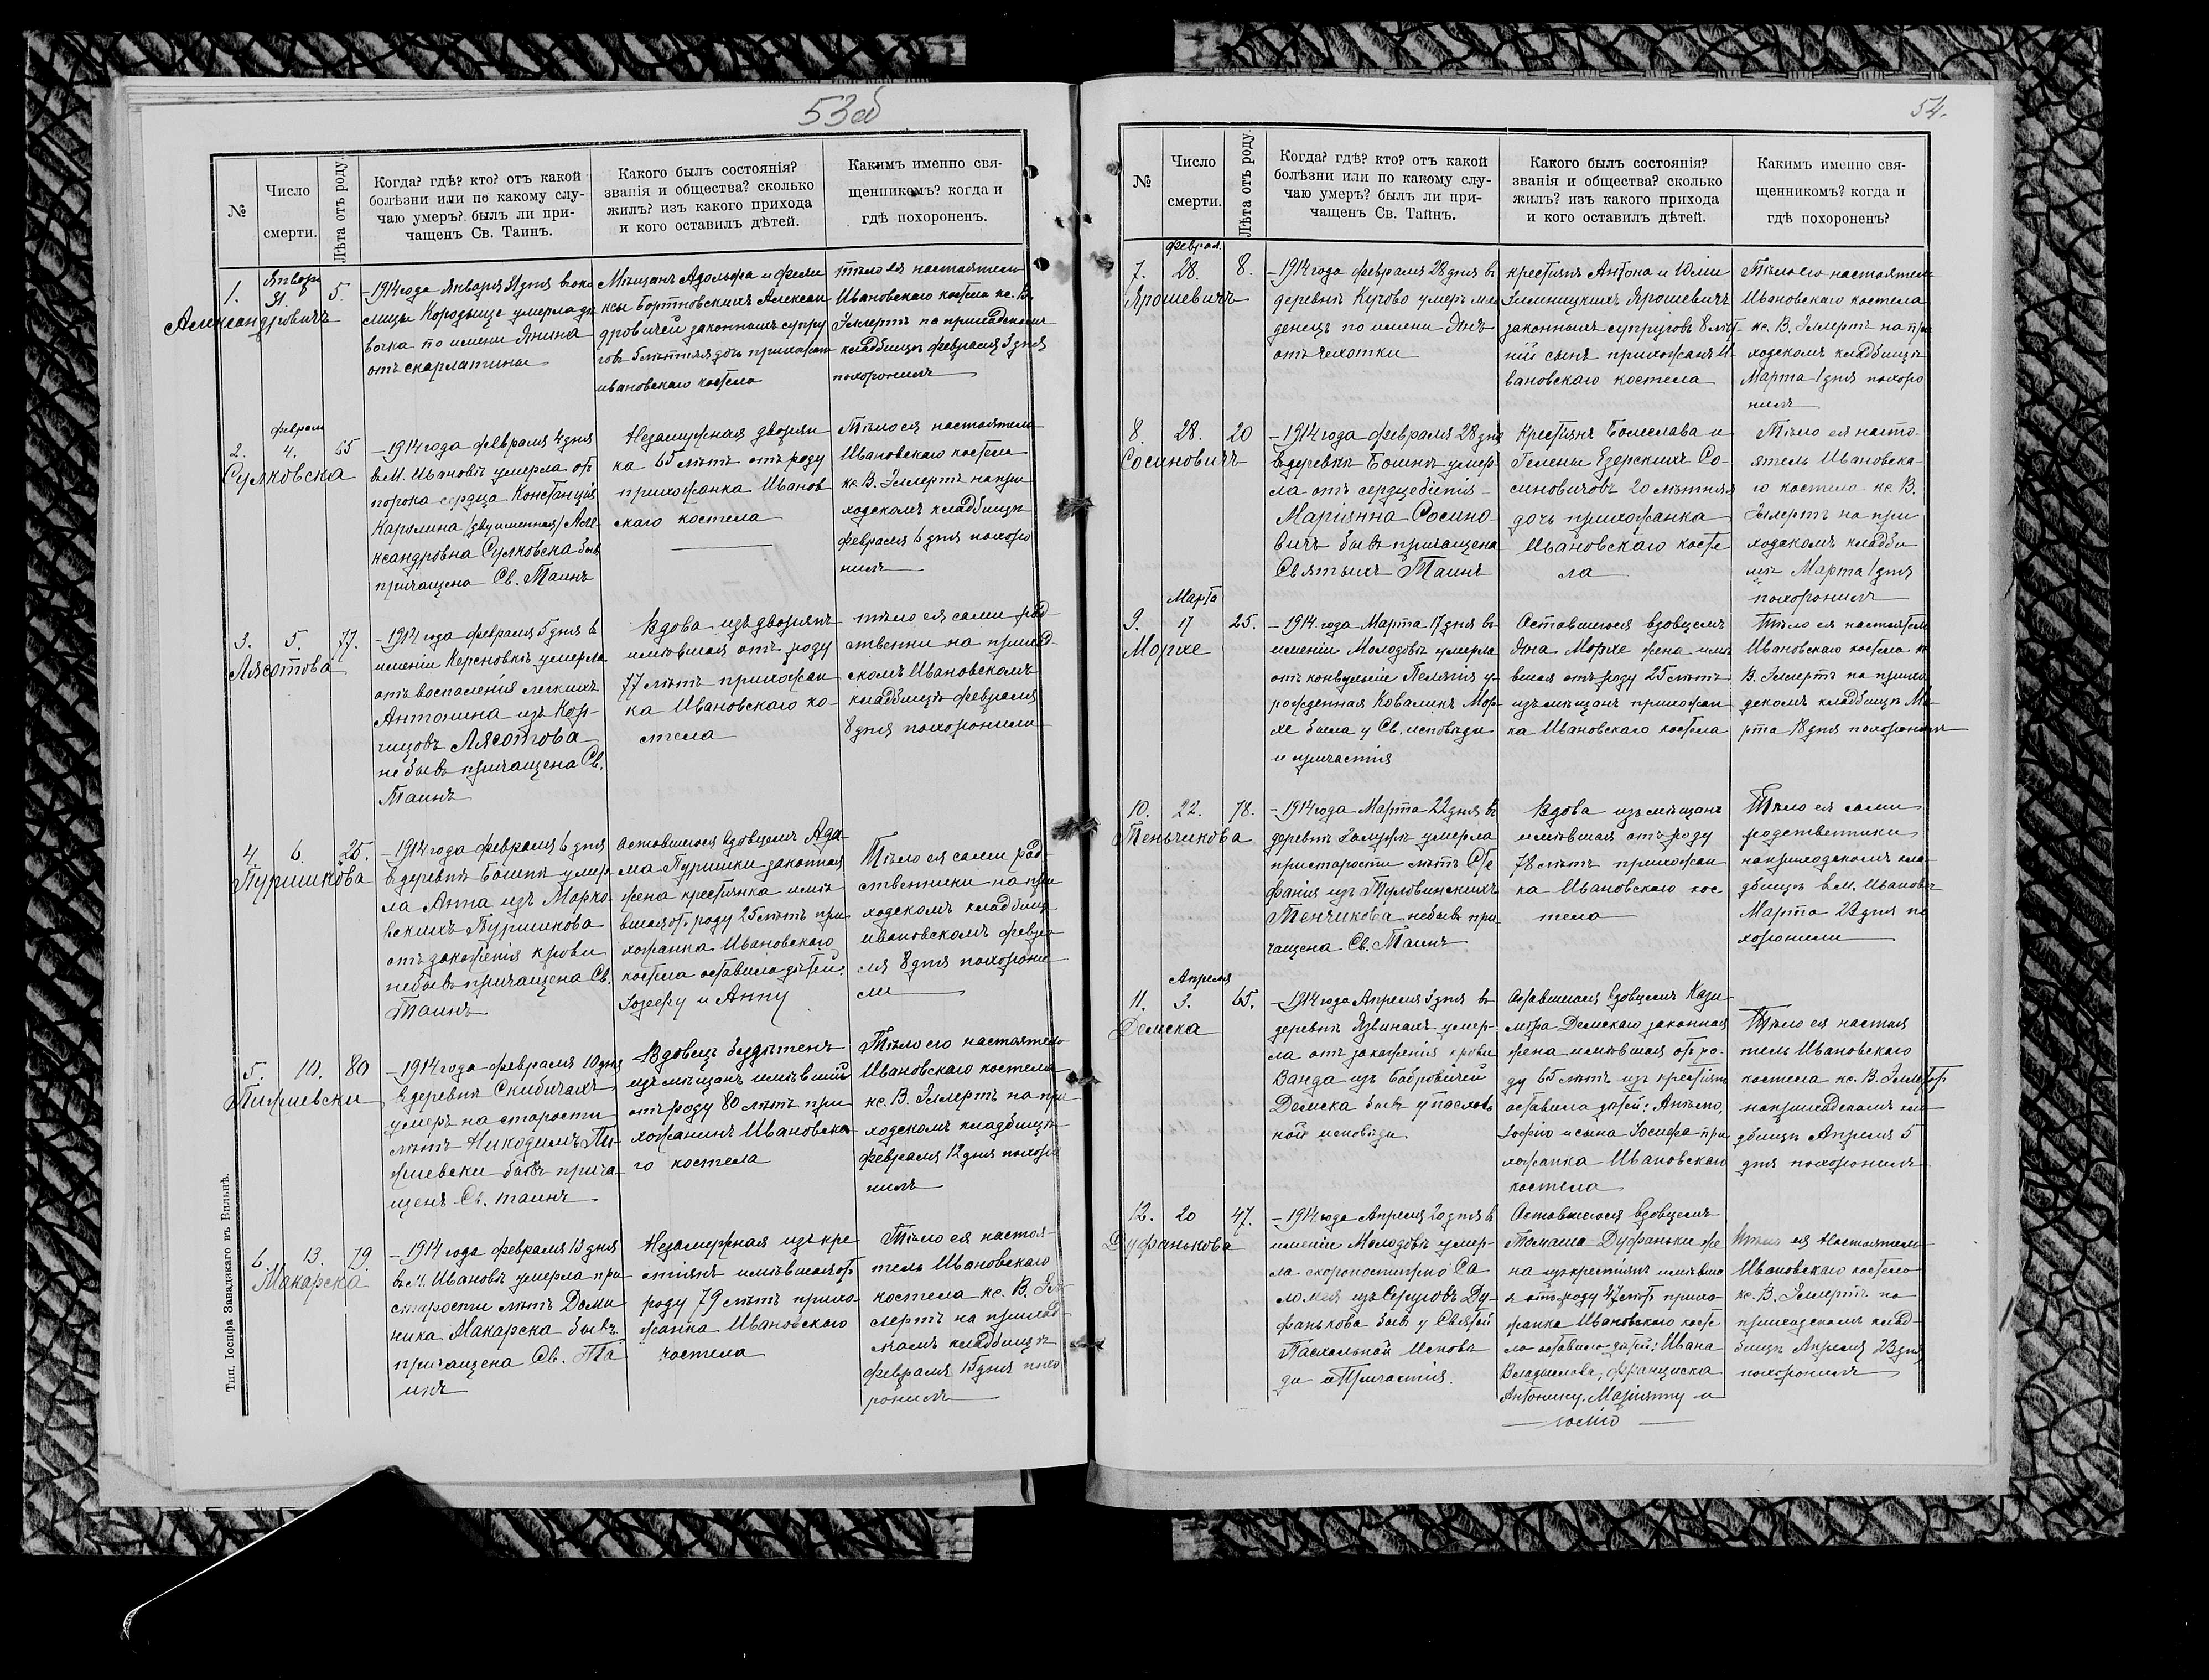 53об
№
Число
смерти.
Лѣта отъ роду.
Когда? гдѣ? кто? отъ какой
болѣзни или по какому слу-
чаю умеръ? былъ ли при-
чащенъ Св. Таинъ.
Какого былъ состоянія?
званія и общества? сколько
жилъ? изъ какого прихода
и кого оставилъ дѣтей.
Какимъ именно свя-
щенникомъ? когда и
гдѣ похороненъ.
1.
Январ
31.
5.
Александровичъ
— 1914 года Января 31 дня в око
лицы Городыще умерла дѣ
вочка по имени Янина
отъ скарлатины
Мѣщанъ Адольфа и Фели
ксы Бортновскихъ Алексан
дровичей законныхъ супру
говъ 5 лѣтняя дочь прихожан
ивановскаго костела
тѣло ея настоятель
Ивановскаго костела кс. В.
Эллертъ на приходскомъ
кладбищѣ февраля 3 дня
похоронилъ
2.
феврал
4.
65
Сулковска
— 1914 года февраля 4 дня
въ М. Ивановѣ умерла отъ
порока сердца Констанція
Каролина /двуименная/ Але
ксандровна Сулковска бывъ
причащена Св. Таинъ
Незамужная дворян
ка 65 лѣтъ отъ роду
прихожанка Иванов
скаго костела
Тѣло ея настоятель
Ивановскаго костела
кс. В. Эллертъ на при
ходскомъ кладбищѣ
февраля 6 дня похоро
нилъ
3.
5.
77.
Лясотова
— 1914 года февраля 5 дня в
имѣніи Керсновкѣ умерла
отъ воспаленія легкихъ
Антонина изъ Кор-
чицовъ Лясотова
не бывъ причащена Св.
Таинъ
Вдова изъ дворянъ
имѣвшая отъ роду
77 лѣтъ прихожан
ка Ивановскаго ко-
стела
тѣло ея сами род
ственни на приход
скомъ Ивановскомъ
кладбищѣ февраля
8 дня похоронили
4.
6.
25.
Пуришкова
— 1914 года февраля 6 дня
въ деревнѣ Бошни умер
ла Анна изъ Марко
вскихъ Пуришкова
отъ зараженія крови
не бывъ причащена Св.
Таинъ
Оставшегося вдовцемъ Ада
ма Пуришки законная
жена крестьянка имѣ
вшая отъ роду 25 лѣтъ при
хожанка Ивановскаго
костела оставила дѣтей:
Іозефу и Анну
Тѣло ея сами род
ственники на при
ходскомъ кладбищѣ
ивановскомъ февра
ля 8 дня похорони
ли
5.
10.
80
Пижиевски
— 1914 года февраля 10 дня
въ деревнѣ Скибичахъ
умеръ на старости
лѣтъ Никодимъ Пи-
жиевски бывъ прича
щенъ Св. таинъ
Вдовецъ бездѣтенъ
изъ мѣщанъ имѣвшій
отъ роду 80 лѣтъ при
хожанинъ Ивановска
го костела
Тѣло его настоятель
Ивановскаго костела
кс. В. Эллертъ на при
ходскомъ кладбищѣ
февраля 12 дня похоро
нилъ
6.
13.
79.
Макарска
— 1914 года февраля 13 дня
въ М. Ивановѣ умерла при
старости лѣтъ Доми
ника Макарска бывъ
причащена Св. Та
инъ
Незамужная изъ кре
стьянъ имѣвшая отъ
роду 79 лѣтъ прихо
жанка Ивановскаго
костела
Тѣло ея настоя-
тель Ивановскаго
костела кс. В. Эл
лертъ на приход
кладбищѣ
февраля 15 дня похо
ронилъ
Тип. Іосифа Завадзкаго въ Вильнѣ.
54.
№
Число
смерти.
Лѣта отъ роду
Когда? гдѣ? кто? отъ какой
болѣзни или по какому слу-
чаю умеръ? былъ ли при-
чащенъ Св. Тайнъ.
Какого былъ состоянія?
званія и общества? сколько
жилъ? изъ какого прихода
и кого оставилъ дѣтей.
Какимъ именно свя-
щенникомъ? когда и
гдѣ похороненъ?
7.
феврал.
28.
8.
Ярошевичъ
— 1914 года февраля 28 дня въ
деревнѣ Кугово умеръ мла
денецъ по имени Янъ
отъ чехотки
крестьянъ Антона и Юліи
Зелиницкихъ Ярошевичъ
законныхъ супруговъ 8 лѣт-
ній сынъ прихожанъ И-
вановскаго костела
Тѣло его настоятель
Ивановскаго костела
кс. В. Эллертъ на при
ходскомъ кладбищѣ
Марта 1 дня похоро
нилъ
8.
28.
20
Сосиновичъ
— 1914 года февраля 28 дня
въ деревнѣ Бошнѣ умер-
ла отъ сердцебіенія
Маріянна Сосино-
вичъ бывъ причащена
Святыхъ Таинъ
Крестьянъ Болеслава и
Гелены Езерскихъ Со-
синовичовъ 20 лѣтняя
дочь прихожанка
Ивановскаго косте
ла
Тѣло ея насто-
ятель Ивановска-
го костела кс. В.
Эллертъ на при
ходскомъ кладби
щѣ Марта 1 дня
похоронилъ
9.
Марта
17
25.
Моржe
— 1914 года Марта 17 дня въ
имѣніи Молодовѣ умерла
отъ конвульсіе Пелягія у-
рожденная Коваликъ Мор-
же была у Св. исповѣди
и причастія
Оставшегося вдовцемъ
Яна Морже жена имѣ
вшая отъ роду 25 лѣтъ
изъ мѣщанъ прихожан
ка Ивановскаго костела
Тѣло ея настоятель
Ивановскаго костела кс
В. Эллертъ на прихо
дскомъ кладбищѣ Ма-
рта 18 дня похоронилъ
10.
22.
78.
Теньчикова
— 1914 года Марта 22 дня въ
деревнѣ умерла
при старости лѣтъ Сте
фанія изъ Туловинскихъ
Тенчикова не бывъ при
чащена Св. Таинъ
Вдова изъ мѣщанъ
имѣвшая отъ роду
78 лѣтъ прихожан
ка Ивановскаго кос
тела
Тѣло ея сами
родственики
на приходскомъ кла
дбищѣ въ М. Ивановѣ
Марта 23 дня по
хоронили
11.
Апреля
3.
65.
Демска
— 1914 года Апреля 3 дня въ
деревнѣ Язвинахъ умер-
ла отъ зараженія крови
Ванда изъ Бобровичей
Демска бывъ у пасхаль
ной исповѣди
Оставшегося вдовцемъ Кази
мира Демскаго законная
жена имѣвшая отъ ро-
ду 65 лѣтъ изъ крестьянъ
оставила дѣтей: Анелю,
Зофію и сына Іосифа при
хожанка Ивановскаго
костела
Тѣло ея настоя
тель Ивановскаго
костела кс. В. Эллертъ
на приходскомъ кла-
дбищѣ Апреля 5
дня похоронилъ
12.
20
47.
Дуфанькова
— 1914 года Апреля 20 дня въ
имѣніи Молодовѣ умер-
ла скоропостижно Са
ломея изъ Серуговъ Ду-
фанькова бывъ у Святой
Пасхальной Исповѣ
ди и Причастія.
Оставшегося вдовцемъ
Томаша Дуфаньки же
на изъ крестьянъ имѣвша
я отъ роду 47 лѣтъ прихо
жанка Ивановскаго косте
ла оставила дѣтей: Ивана
Владислава, Франциска
Антонину, Маріянну и
Юлію
тѣло ея Настоятель
Ивановскаго костела
кс. В. Эллертъ на
приходскомъ клад-
бищѣ Апреля 23 дня
похоронилъ